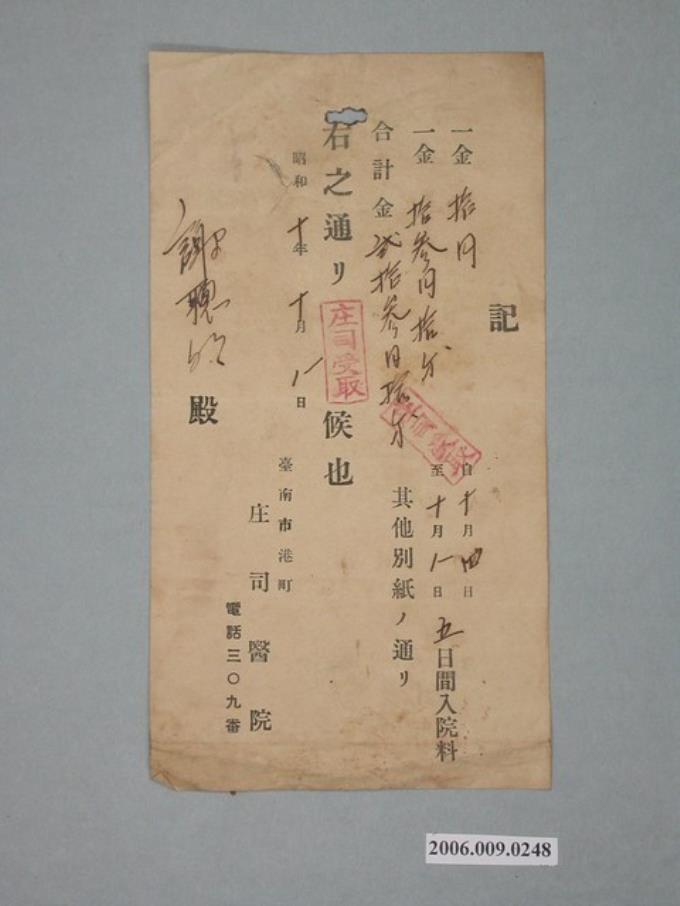 記
一金 拾円
自十月四日
至十月八日
五日間入院料
一金 拾参円拾銭
其他別紙ノ通リ
合計金 弐拾参円拾銭
右之通リ 候也
庄司受取
昭和十年十月八日
臺南市港町
庄司醫院
電話三〇九番
謝聰 殿
2006.009.0248